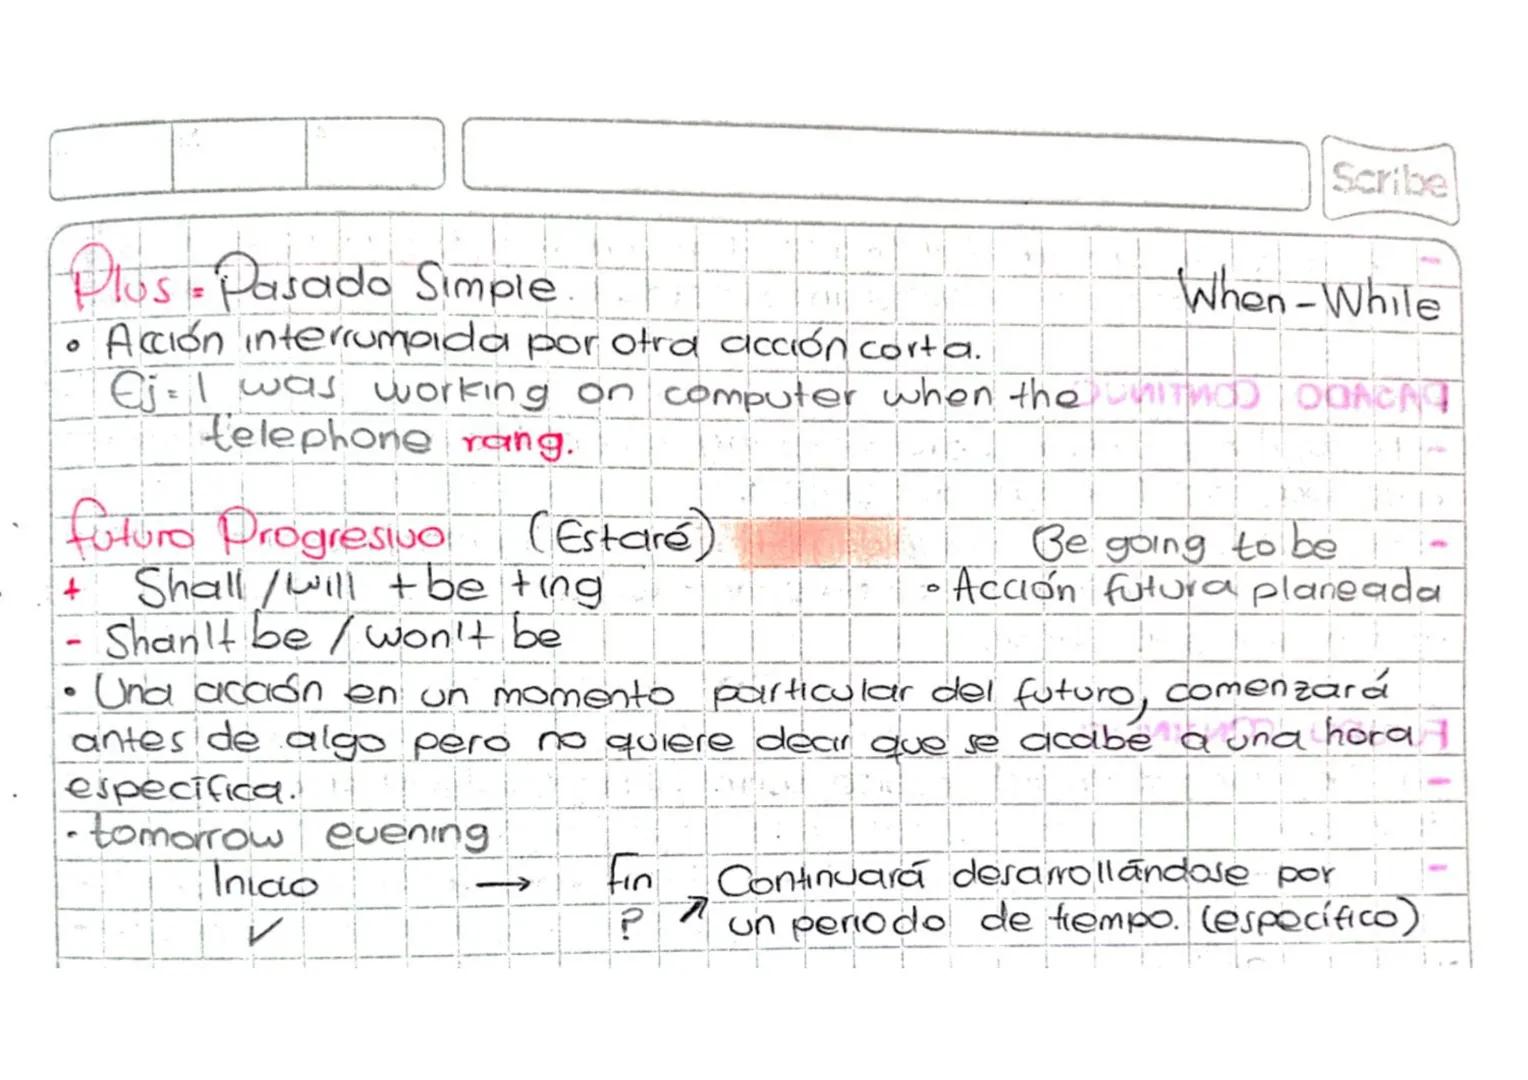 Scribe
Plus = Pasado Simple. When - While
• Acción interrumpida por otra acción corta.
Ej = I was working on computer when the
telephone rang.
futuro Progresivo (Estaré) Be going to be
+ Shall / will + be + ing • Acción futura planeada
- Shan't be / won't be
• Una acción en un momento particular del futuro, comenzará
antes de algo pero no quiere decir que se acabe a una hora
específica.
- tomorrow evening
Inicio → fin Continuará desarrollándose por
✓ ? ↗ un periodo de tiempo. (específico)